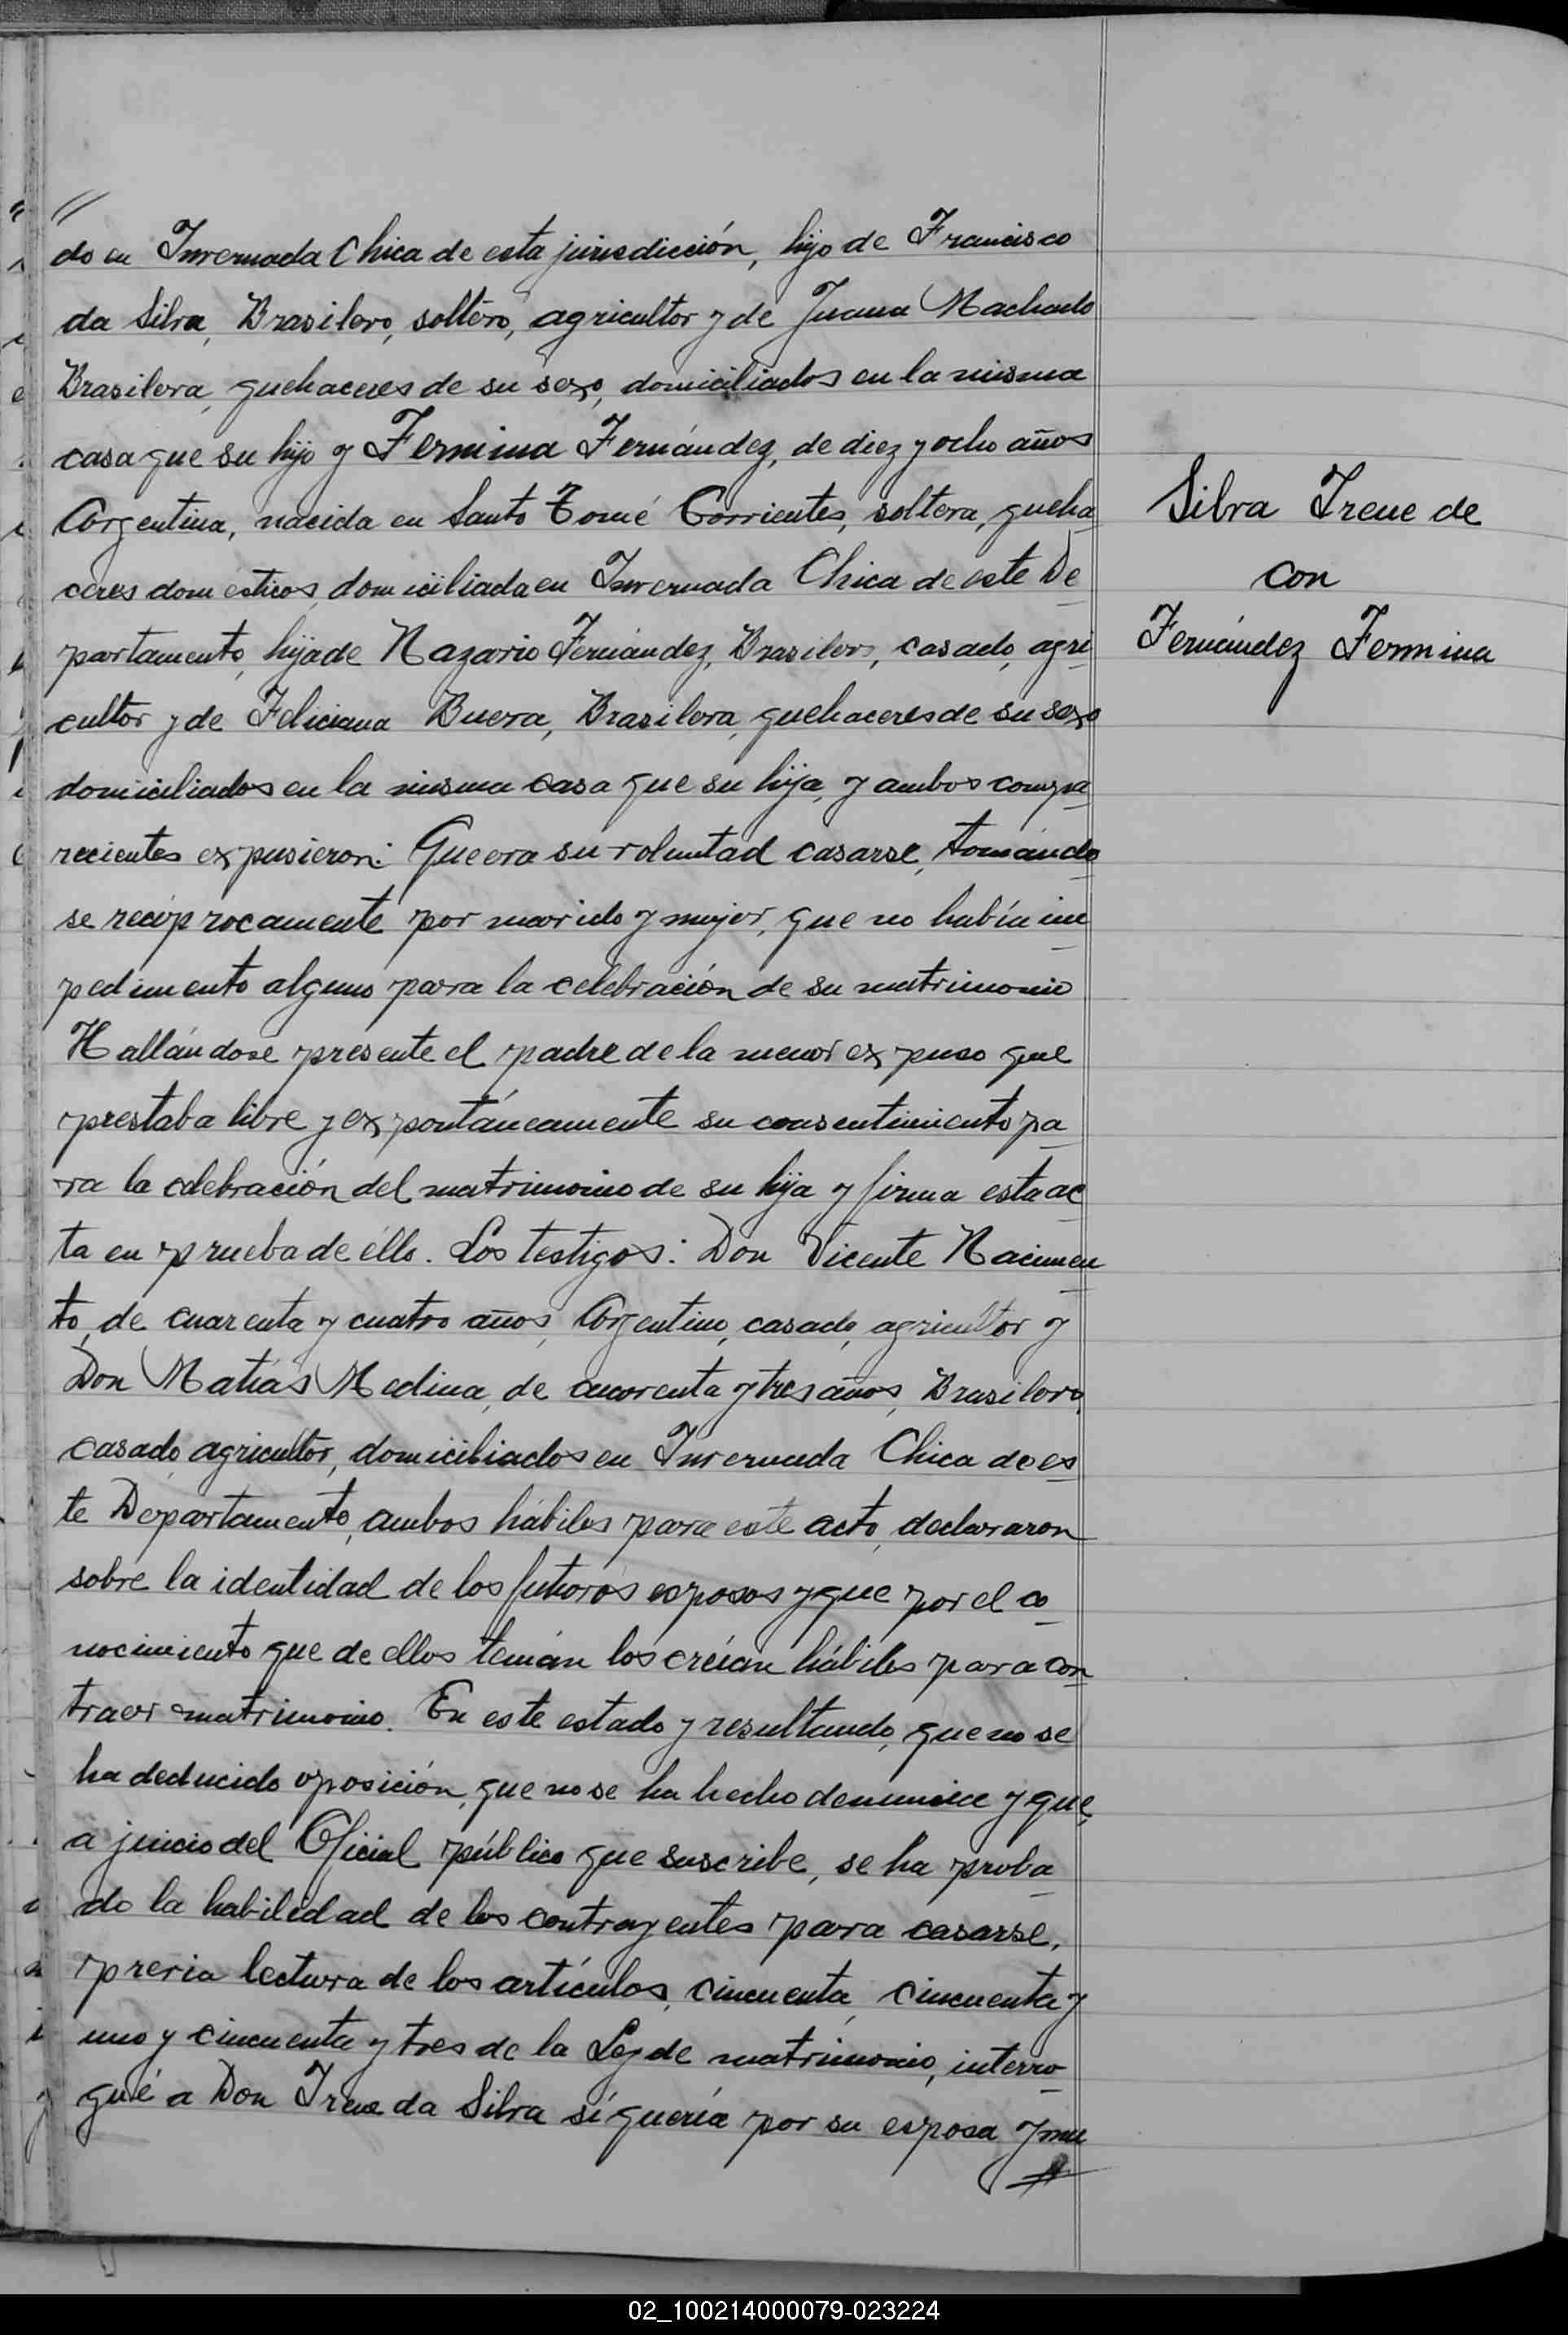 //
do en Invernada Chica de esta jurisdicción, hijo de Francisco
da Silva, Brasilero, soltero, agricultor y de Juana Machado
Brasilera, quehaceres de su sexo, domiciliados en la misma
casa que su hijo y Fermina Fernández, de diez y ocho años
Argentina, nacida en Santo Tomé Corrientes, soltera, queha
ceres domésticos, domiciliada en Invernada Chica de este De
partamento, hija de Nazario Fernández, Brasilero, casado, agri
cultor y de Feliciana Buera, Brasilera, quehaceres de su sexo
domiciliados en la misma casa que su hija, y ambos compa
recientes expusieron: Que era su voluntad casarse, tomándo
se recíprocamente por marido y mujer, que no había im
pedimento alguno para la celebración de su matrimonio
Hallándose presente el padre de la menor expuso que
prestaba libre y expontáneamente su consentimiento pa
ra la celebración del matrimonio de su hija y firma esta ac
ta en prueba de éllo. Los testigos: Don Vicente Nacimen
to, de cuarenta y cuatro años, Argentino, casado, agricultor y
Don Matías Medina, de cuarenta y tres años, Brasilero,
casado, agricultor, domiciliados en Invernada Chica de es
te Departamento, ambos hábiles para este acto, declararon
sobre la identidad de los futuros esposos y que por el co
nocimiento que de ellos tenían los creían hábiles para con
traer matrimonio. En este estado y resultando, que no se
ha deducido oposición, que no se ha hecho denuncia y que,
a juicio del Oficial público que suscribe, se ha proba
do la habilidad de los contrayentes para casarse,
previa lectura de los artículos, cincuenta, cincuenta y
uno y cincuenta y tres de la Ley de matrimonio, interro
gué a Don Irene da Silva sí quería por su esposa y mu
//
Silva Irene de
con
Fernández Fermina
02_100214000079-023224